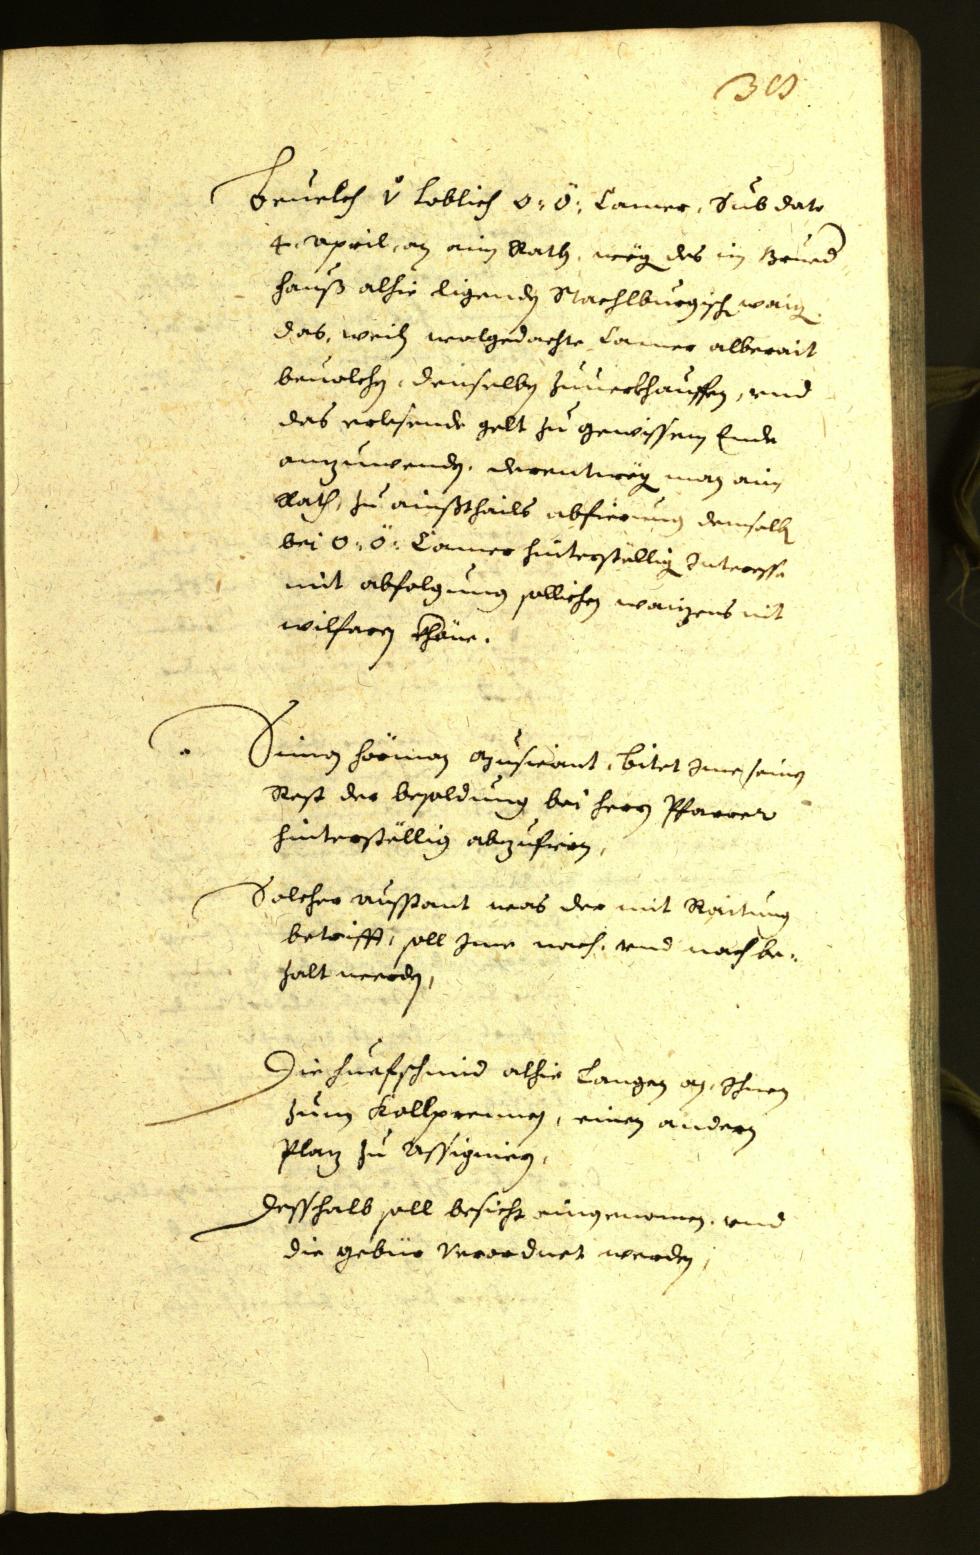 Beuelch v̊ Loblich O: Ö: Camer, Sub dato
4. April, an ain Rath, weg des im
hauß alhie ligenden Stachlburgisch waiz
das, weil wolgedachte Camer alberait
beuolchen, denselben zuuerkhauffen, vnd
das erlesende gelt zu gewissem Ende
anzuwenden. derentweg man ain
Rath, zu ainßthails abfierung demselb
bei O: Ö: Camer hinterställig Interesse
mit abfolgung sollichen waizens nit
wilfaren khöne.
Simon Hörman Musicant, bitet Ime seinen
Rest der besoldung bei hern Pfarrer
hinterstellig abzufiern,
Solcher ausstant was der mit Raittung
betrifft, soll Ime nach: vnd nach be-
zalt werden,
Die huefschmid alhie Langen an, Ihnen
zum Kollprennen, einen andern
Platz zu Assignieren,
Desshalb soll besicht eingenomen, vnd
die gebür Verordnet werden,